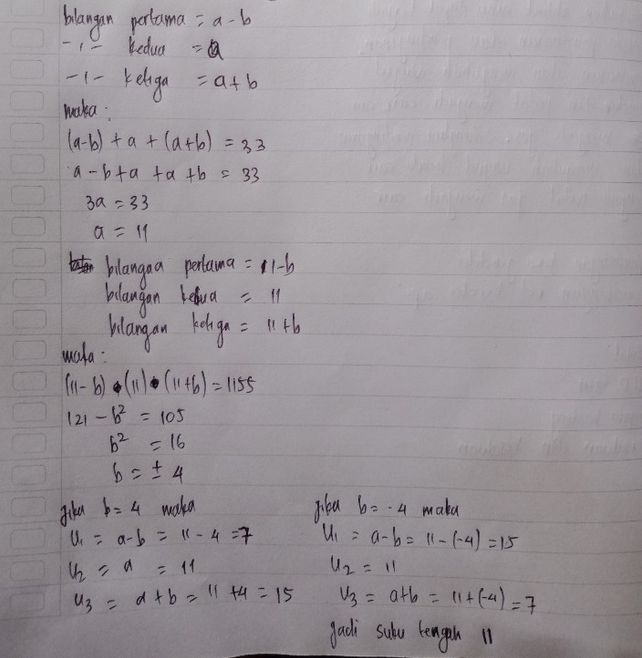 bilangan pertama = a - b
-1- kedua = a
-1- ketiga = a + b
maka :
(a-b) + a + (a+b) = 33
a - b + a + a + b = 33
3a = 33
a = 11
bilangan pertama = 11-b
bilangan kedua = 11
bilangan ketiga = 11 + b
maka :
(11-b) • (11) • (11+b) = 1155
121 - b² = 105
b² = 16
b = ± 4
jika b = 4 maka
U₁ = a-b = 11 - 4 = 7
U₂ = a = 11
U₃ = a + b = 11 + 4 = 15
jika b = -4 maka
U₁ = a-b = 11 - (-4) = 15
U₂ = 11
U₃ = a+b = 11 + (-4) = 7
jadi suku tengah 11